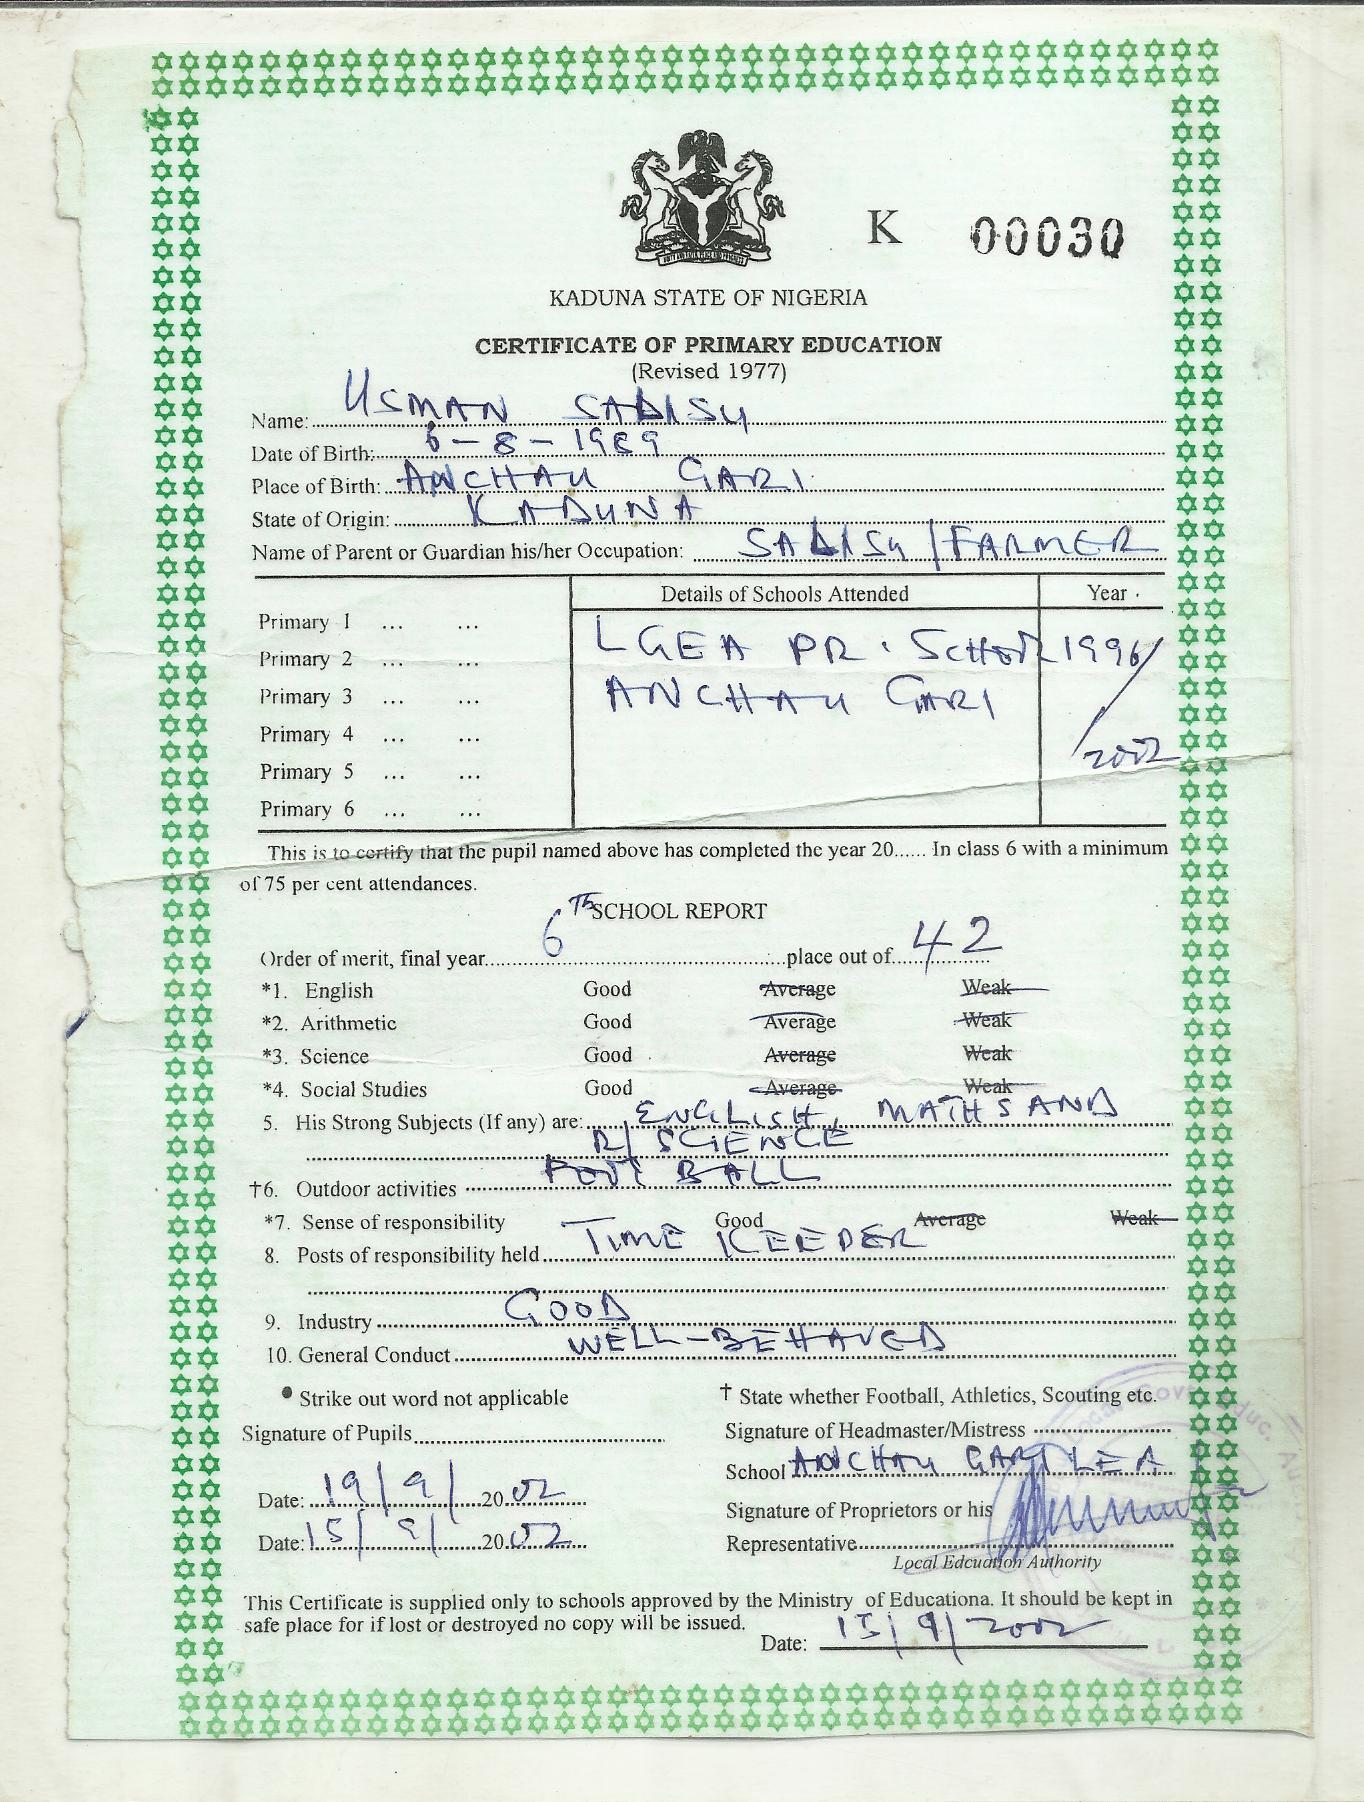 K 00030
KADUNA STATE OF NIGERIA
CERTIFICATE OF PRIMARY EDUCATION
(Revised 1977)
Name: USMAN SADISU
Date of Birth: 6-8-1989
Place of Birth: ANCHAU GARI
State of Origin: KADUNA
Name of Parent or Guardian his/her Occupation: SADISU/FARMER
Details of Schools Attended Year
Primary 1 ... ...
Primary 2 ... ... LGEA PR. SCHOOL 1996/
Primary 3 ... ... ANCHAU GARI
Primary 4 ... ...
Primary 5 ... ... 2002
Primary 6 ... ...
This is to certify that the pupil named above has completed the year 20...... In class 6 with a minimum
of 75 per cent attendances.
SCHOOL REPORT
Order of merit, final year 6TH place out of 42
*1. English Good Average Weak
*2. Arithmetic Good Average Weak
*3. Science Good Average Weak
*4. Social Studies Good Average Weak
5. His Strong Subjects (If any) are: ENGLISH, MATHS AND
R/SCIENCE
†6. Outdoor activities FOOT BALL
*7. Sense of responsibility Good Average Weak
8. Posts of responsibility held TIME KEEPER
9. Industry GOOD
10. General Conduct WELL-BEHAVED
• Strike out word not applicable † State whether Football, Athletics, Scouting etc.
Signature of Pupils Signature of Headmaster/Mistress
School ANCHAU GARI LEA
Date: 19/9/2002 Signature of Proprietors or his
Date: 15/9/2002 Representative
Local Edcuation Authority
This Certificate is supplied only to schools approved by the Ministry of Educationa. It should be kept in
safe place for if lost or destroyed no copy will be issued.
Date: 15/9/2002